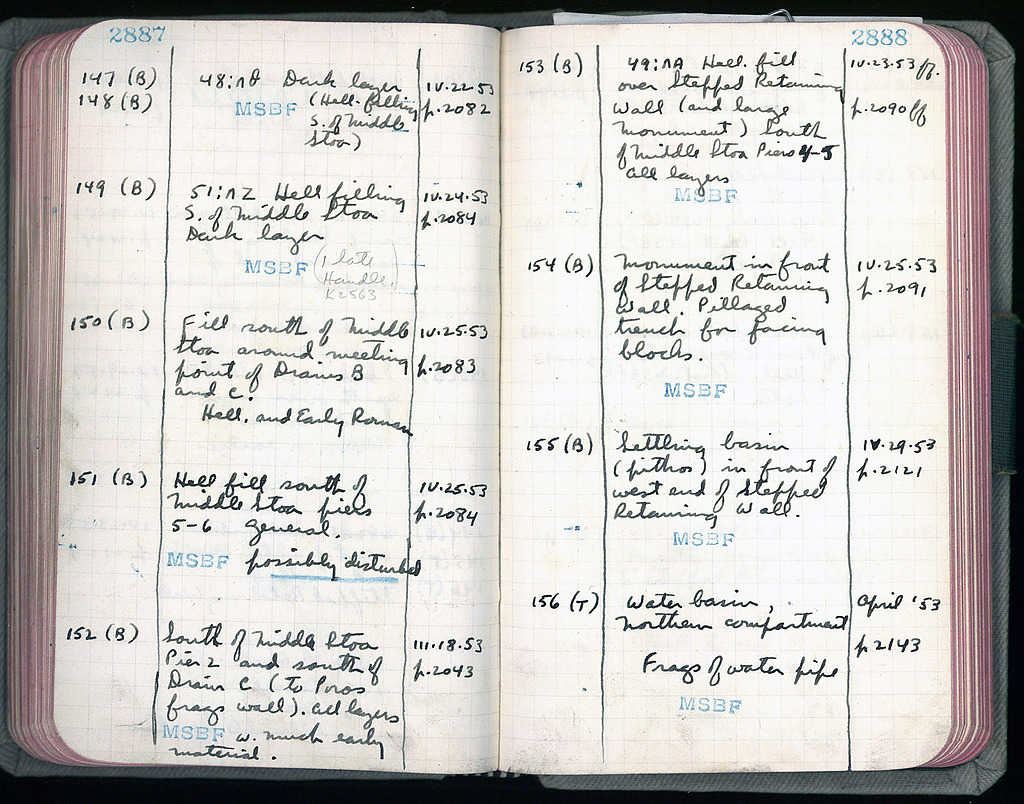 2887
147 (B) 48:ΛΘ Dark layer IV.22.53
148 (B) MSBF (Hell. filling p.2082
S. of Middle
Stoa)
149 (B) 51:ΛZ Hell filling IV.24.53
S. of Middle Stoa p.2084
Dark layer
MSBF (1 late
Handle.
K2563
150 (B) Fill south of Middle IV.25.53
Stoa around meeting p.2083
point of Drains B
and C.
Hell. and Early Roman
151 (B) Hell fill south of IV.25.53
Middle Stoa piers p.2084
5-6 general.
MSBF possibly disturbed
152 (B) South of Middle Stoa III.18.53
Pier 2 and south of p.2043
Drain C (to Poros
frags wall). All layers
MSBF w. much early
material.
2888
153 (B) 49:ΛΛ Hell. fill IV.23.53 ff.
over Stepped Retaining
Wall (and large p.2090 ff
monument) South
of Middle Stoa Piers 4-5
All layers
MSBF
154 (B) Monument in front IV.25.53
of Stepped Retaining p.2091
Wall. Pillaged
trench for facing
blocks.
MSBF
155 (B) Settling basin IV.29.53
(pithos) in front of p.2121
west end of Stepped
Retaining Wall.
MSBF
156 (T) Water basin, April '53
Northern compartment
p.2143
Frags of water pipe
MSBF